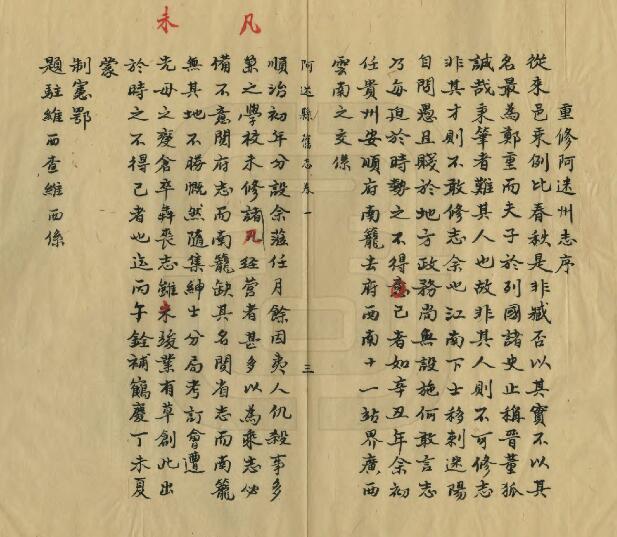 重修阿迷州志序
從來邑乘例比春秋是非臧否以其實不以其
名最為鄭重而夫子於列國諸史止稱晉董狐
誠哉秉筆者難其人也故非其人則不可修志
非其才則不敢修志余也江南下士移剌迷陽
自問愚且賤於地方政務尚無設施何敢言志
乃每迫於時勢之不得已者如辛丑年余初
任貴州安順府南籠去府西南十一站界廣西
雲南之交係
阿迷縣舊志卷一
三
順治初年分設余蒞任月餘因夷人仇殺事多
棄之學校未修諸凡經營者甚多以為乘志必
備不意閱府志而南籠缺其名閱省志而南籠
無其地不勝慨然隨集紳士分局考訂會遭
先母之變倉卒奔喪志雖未竣業有草創此出
於時之不得已者也迄丙午銓補鶴慶丁未夏
蒙
制憲鄂
題駐維西查維西係
凡
未